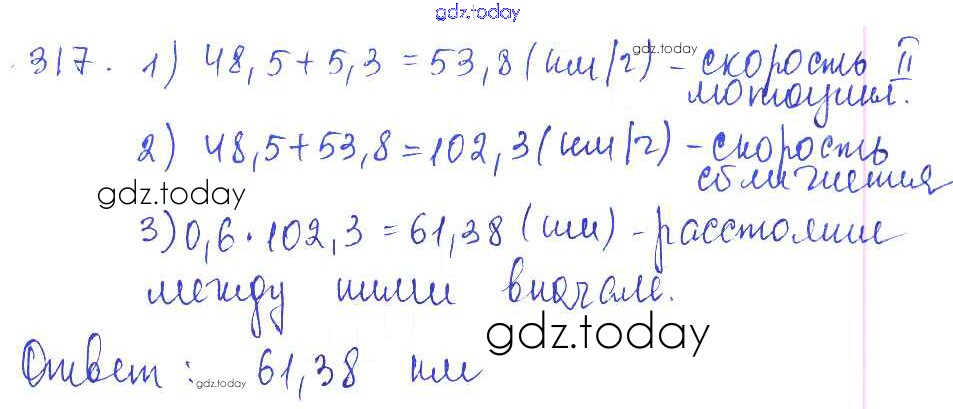 gdz.today
317. 1) 48,5 + 5,3 = 53,8 (км/ч) - скорость II
gdz.today
мотоцикл.
2) 48,5 + 53,8 = 102,3 (км/ч) - скорость
сближения
gdz.today
3) 0,6 · 102,3 = 61,38 (км) - расстояние
между ними вначале.
gdz.today
Ответ: 61,38 км
gdz.today